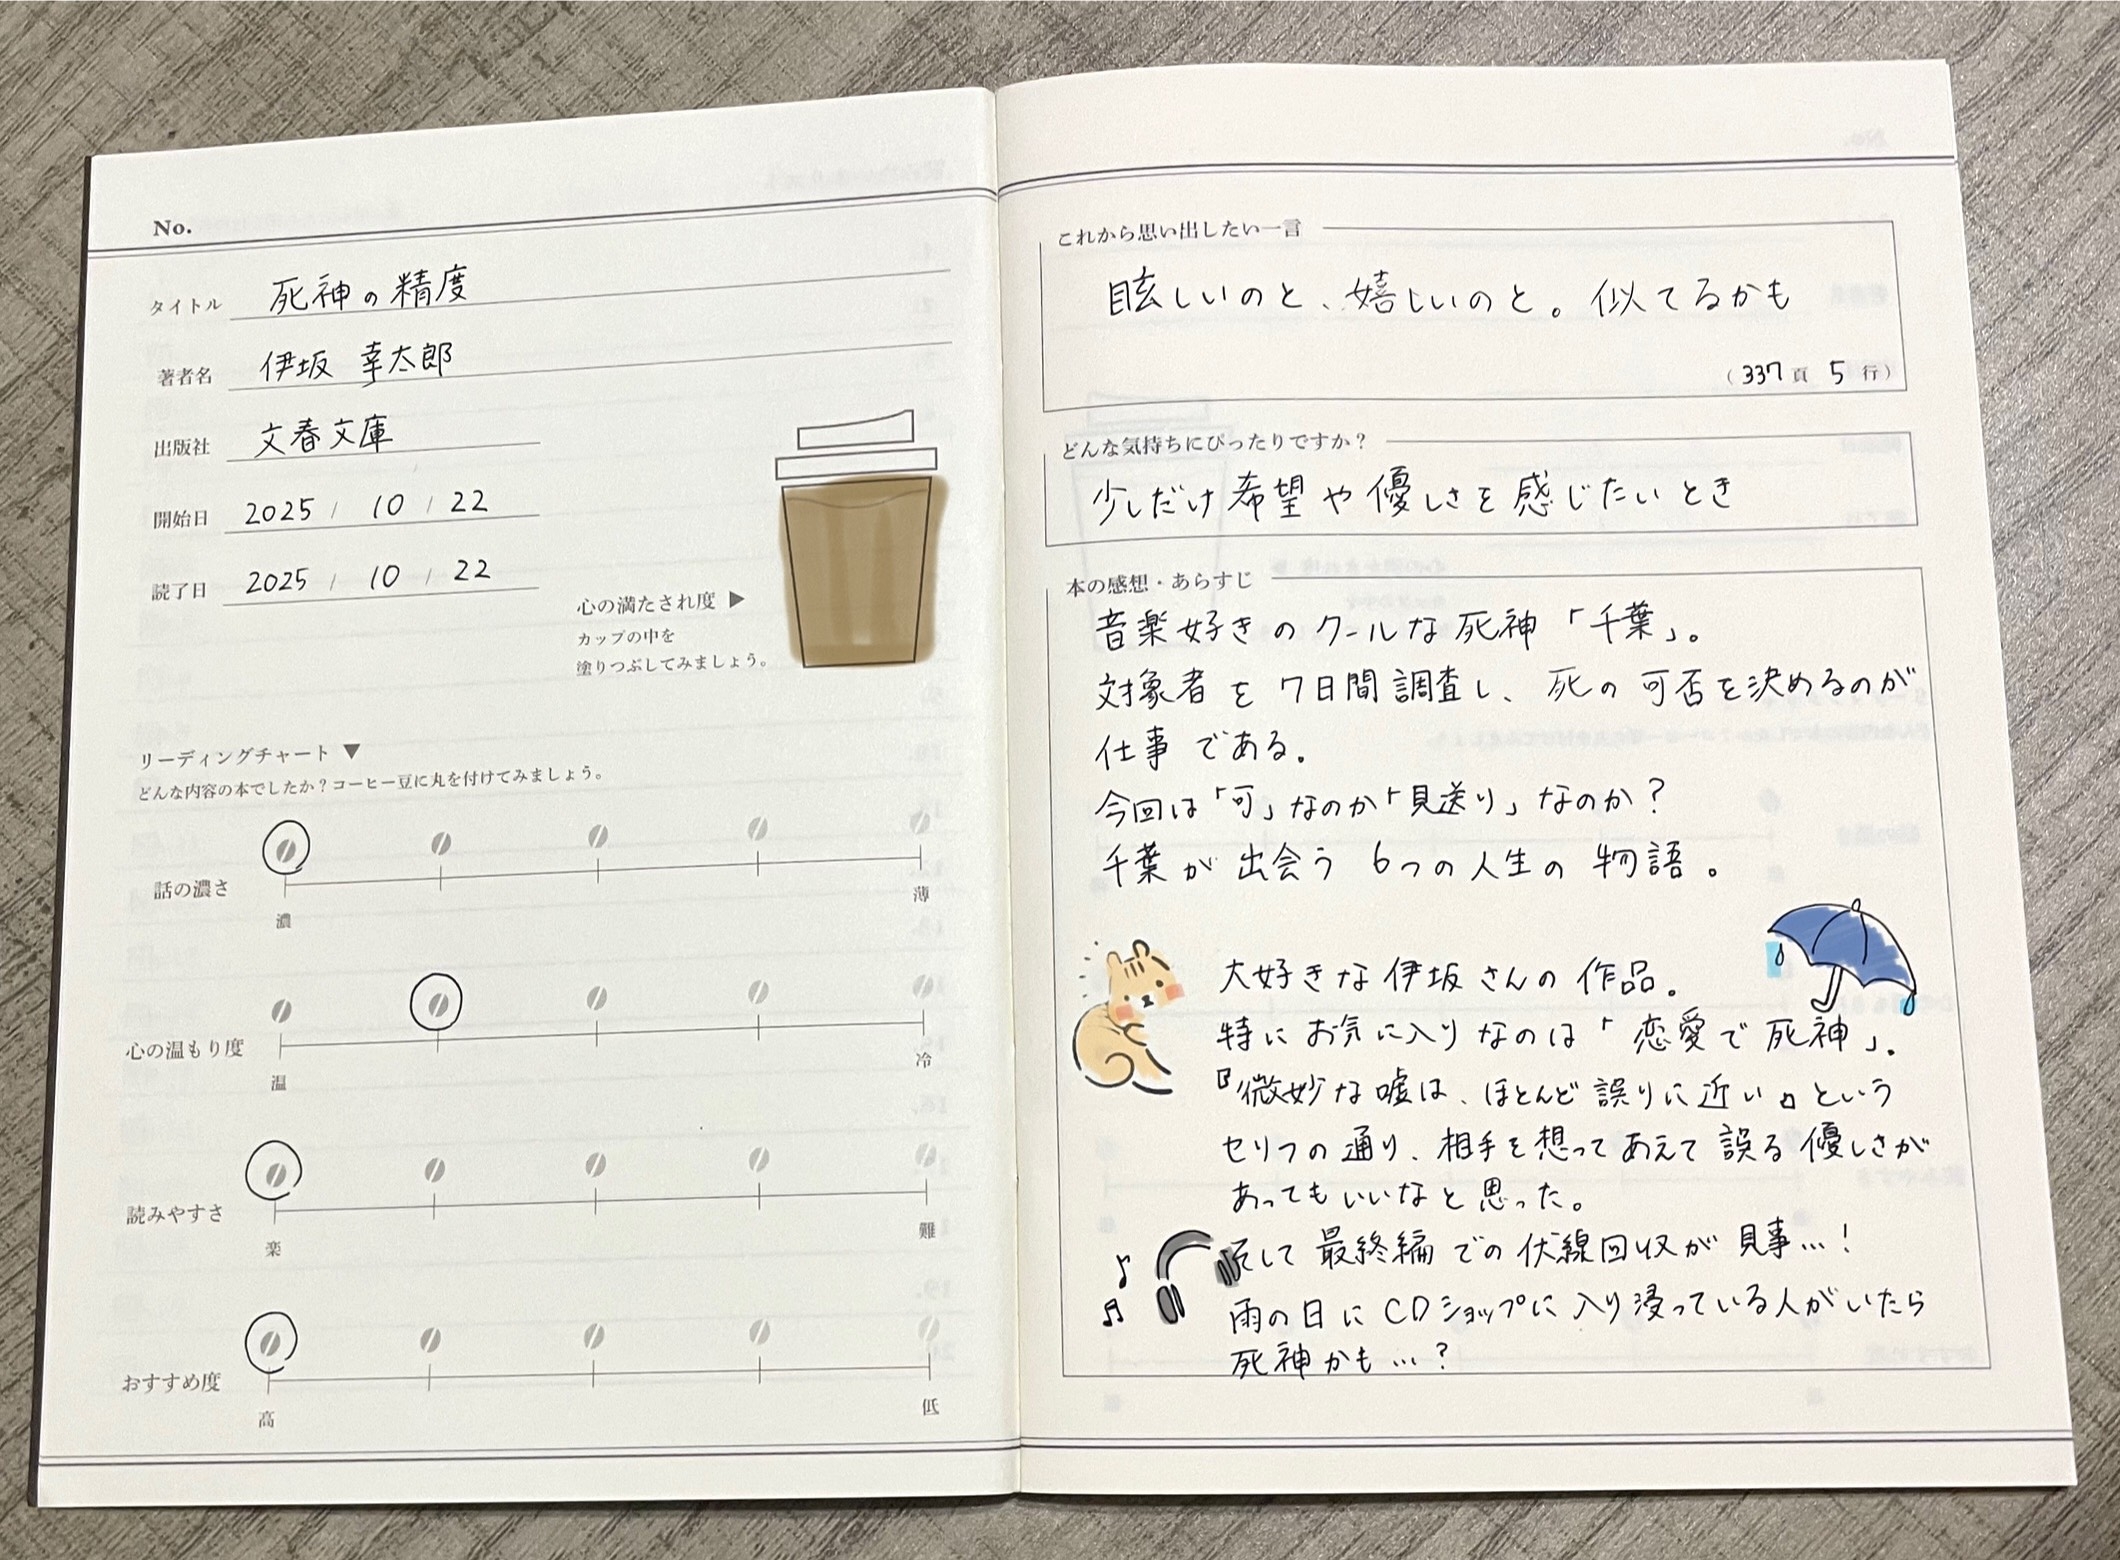 No.
タイトル 死神の精度
著者名 伊坂 幸太郎
出版社 文春文庫
開始日 2025 / 10 / 22
読了日 2025 / 10 / 22
心の満たされ度 ▶
カップの中を
塗りつぶしてみましょう。
リーディングチャート ▼
どんな内容の本でしたか？コーヒー豆に丸を付けてみましょう。
話の濃さ
濃 薄
心の温もり度
温 冷
読みやすさ
楽 難
おすすめ度
高 低
これから思い出したい一言
眩しいのと、嬉しいのと。似てるかも
（337頁 5行）
どんな気持ちにぴったりですか？
少しだけ希望や優しさを感じたいとき
本の感想・あらすじ
音楽好きのクールな死神「千葉」。
対象者を7日間調査し、死の可否を決めるのが
仕事である。
今回は「可」なのか「見送り」なのか？
千葉が出会う6つの人生の物語。
大好きな伊坂さんの作品。
特にお気に入りなのは「恋愛で死神」。
『微妙な嘘は、ほとんど誤りに近い』という
セリフの通り、相手を想ってあえて誤る優しさが
あってもいいなと思った。
そして最終編での伏線回収が見事…！
雨の日にCDショップに入り浸っている人がいたら
死神かも…？